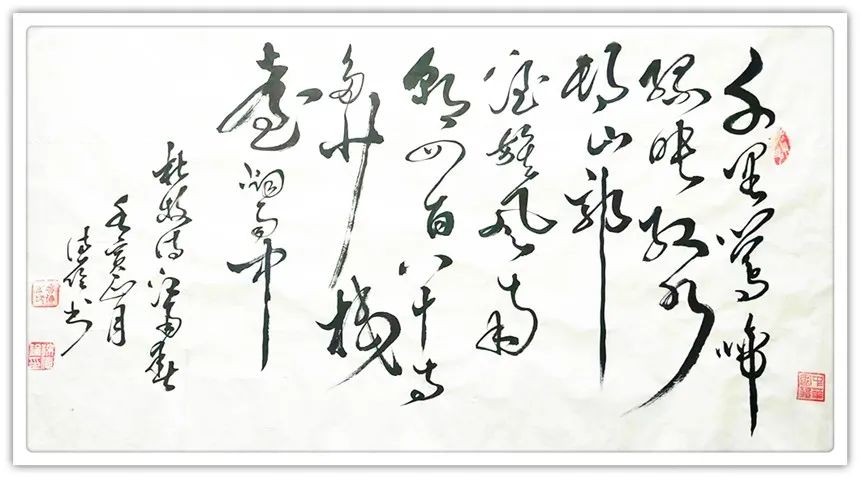 千里鶯啼
緑映红水
村山郭
酒旗風南
朝四百八十寺
多少楼
臺烟雨中
杜牧诗江南春
壬寅月
书